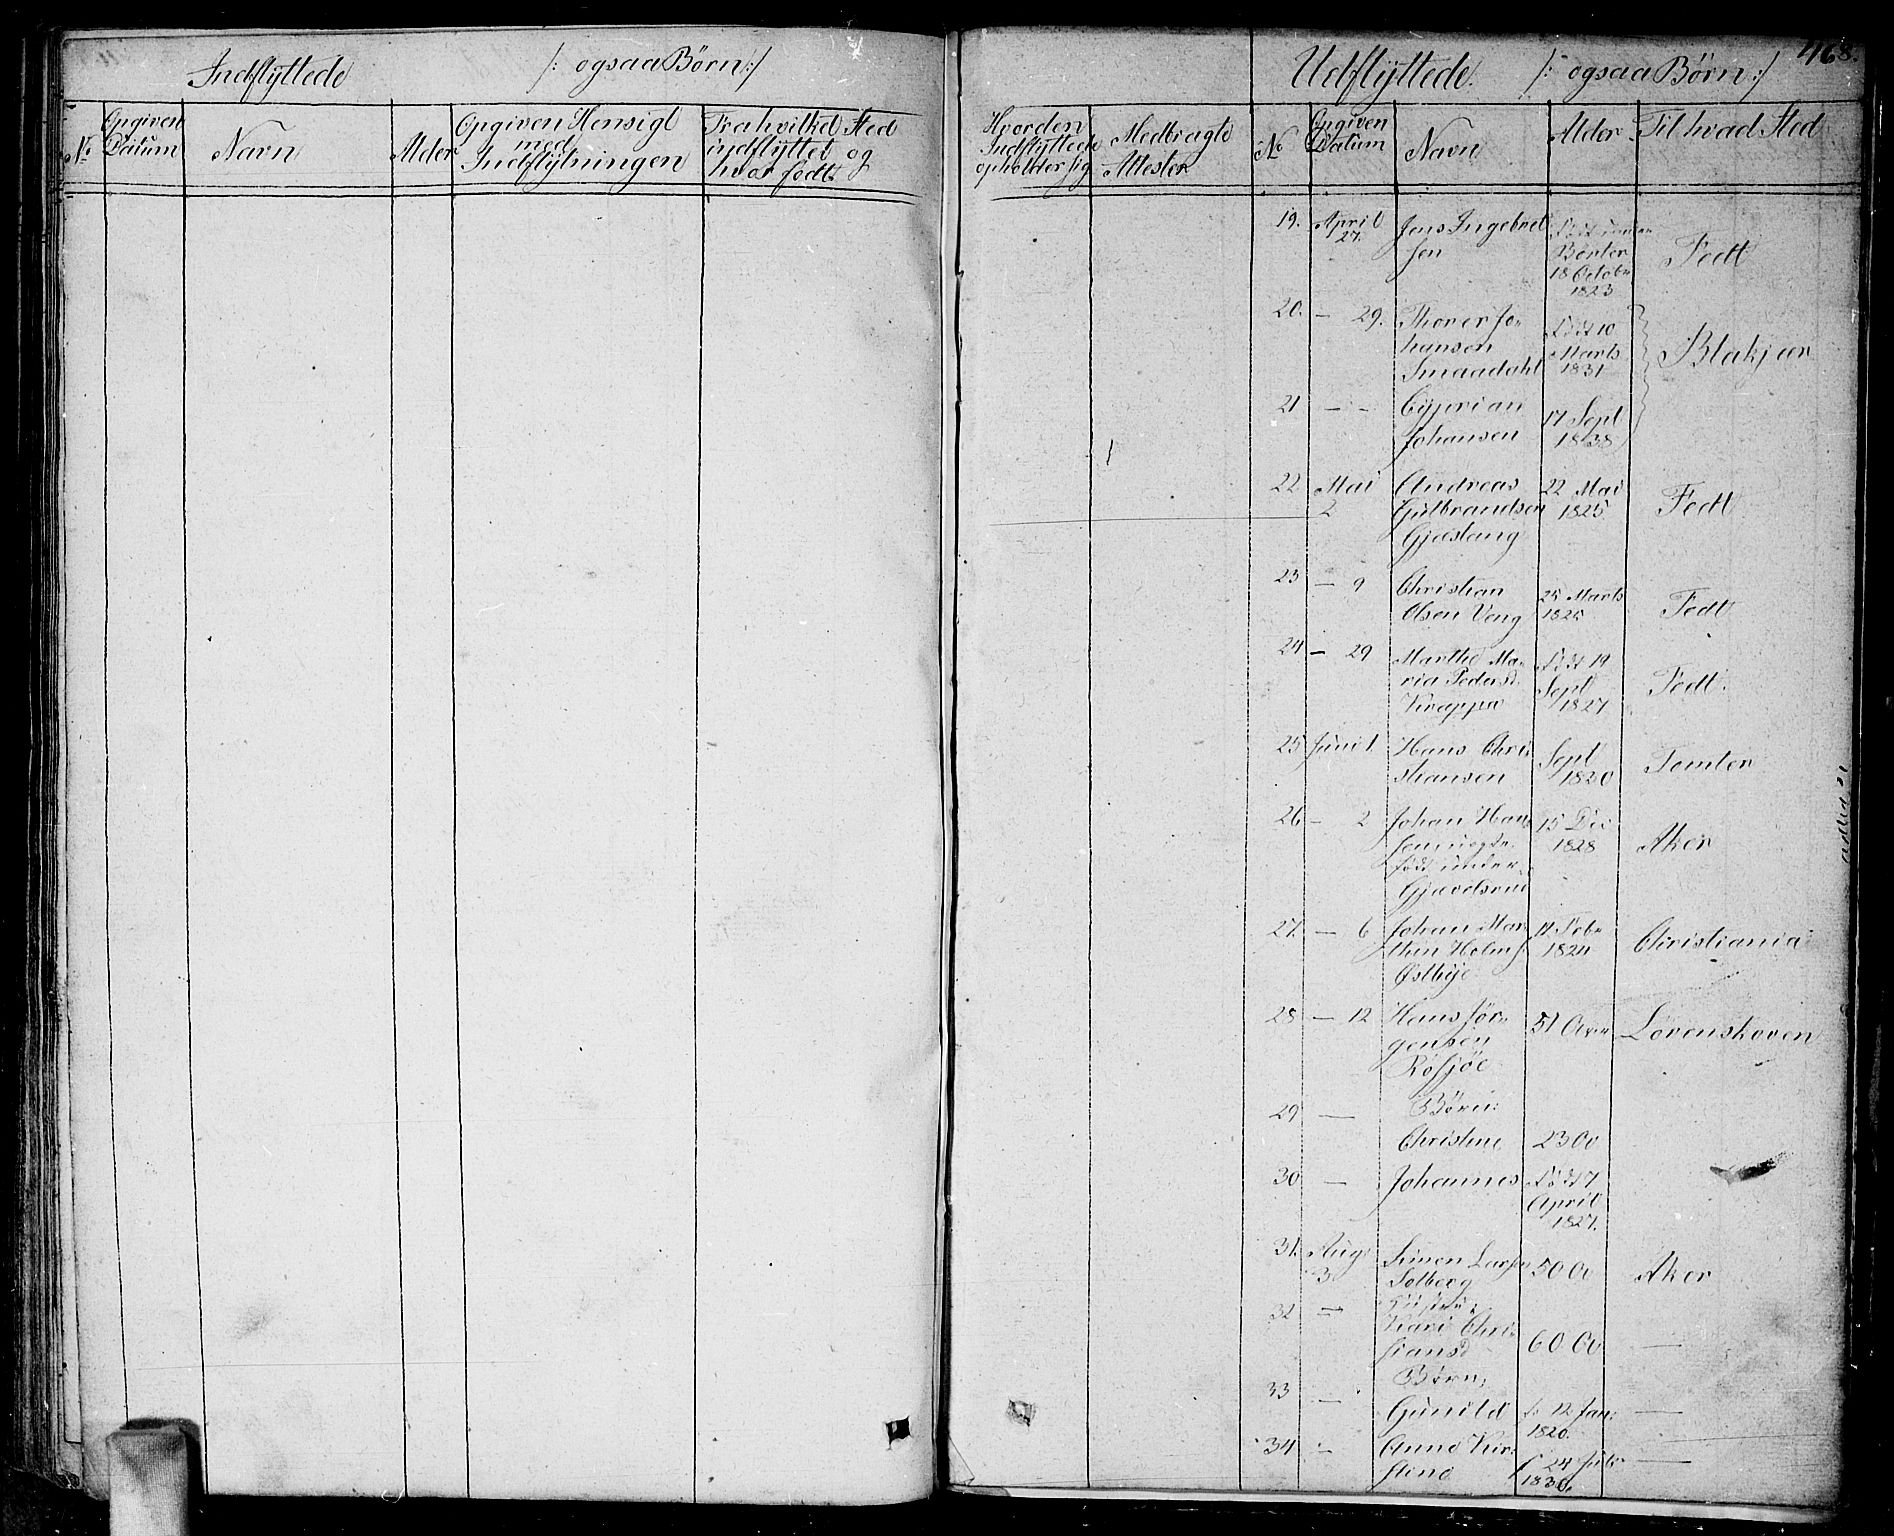 Indflyttede /: ogsaa Børn :/
No
Opgiven
Datum
Navn
Alder
Opgiven Hensigt
med
Indflytningen
Fra hvilket Sted
indflyttet og
hvor født
468.
Udflyttede. /: ogsaa Børn :/
Hvor den
Indflyttede
opholder sig
Medbragte
Attester
No
Opgiven
Datum
Navn
Alder
Til hvad Sted
19. April Jens Ingebret
27. sen
Børter
18 Octobr
1823
Fedt
20. — 29. Thorer Jo-
hansen
Smaadahl
Født 10
Marts
1831
Blakjær
21 — - Cyprian
Johansen
17 Sept
1838
22 Mai Andreas
2 Gulbrandsen
Gjæslang
22 Mai
1825
Fedt
23 — 9 Christian
Olsen Veng
25 Marts
1825
Fedt
24 — 29 Marthe Ma-
ria Pedersd.
Krappa
Født 19
Sept
1827
Fedt.
25 Juni 1. Hans Chri
stiansen
Sept
1820
Tomter
26 — 2 Johan Han
født under
15 Dec
1828
Aker
27. — 6 Johan Mar
thin Holm
Østbye
1824
Christiania
28 — 12 Hans Jør-
gensen
Røsjøe
51 Aar
Lørenskoven
29 — Børn:
Christine 23 Aar
30 — Johannes Født 7
April
1827.
31. Aug Simen Larsen
3 Solberg
50 Aar
Aker
32 — Hustru
Kari Chri-
stiansd
60 Aar —
33 — Børn;
Gunild f. 12 Jan: —
1820.
34 — Anne Kir-
stene
f 24 Juli —
1830.